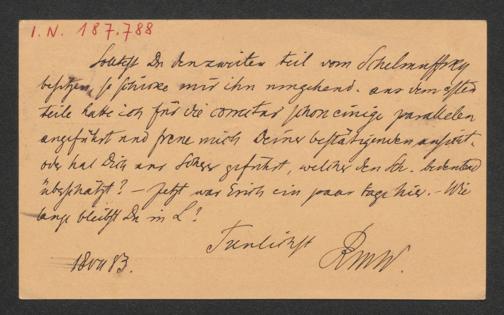 I. N. 187.788
Solltest Du den zweiten teil vom Schelmuffsky
besitzen, so schicke mir ihn umgehend. aus dem ersten
teile habe ich für die comoediae schon einige parallelen
angeführt und freue mich Deiner bestätigenden
oder hat Dich auf geführt, welcher den bedeutend
überschätzt? – Jetzt war Erich ein paar tage hier. – Wie
lange bleibst Du in L?
Treulichst
RMW.
18 VII 83.